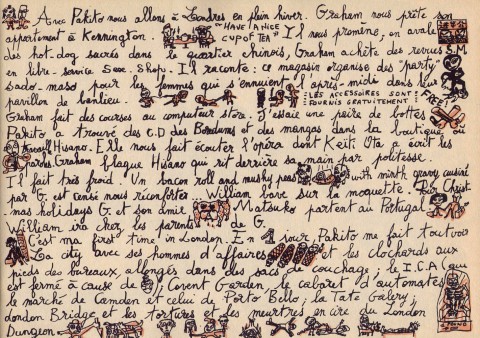 Avec Pakito nous allons à Londres en plein hiver. Graham nous prête son
appartement à Kennington. "HAVE A NICE CUP OF TEA" Il nous promène, on avale
des hot-dog sacrés dans le quartier chinois, Graham achète des revues S.M
en libre-service Sex. Shop. Il raconte: ce magasin organise des "party"
sado-maso pour les femmes qui s'ennuient l'après-midi dans leur
pavillon de banlieue. LES ACCESSOIRES SONT FOURNIS GRATUITEMENT!
Graham fait des courses au computeur store. J'essaie une paire de bottes
Pakito a trouvé des C.D des Boredums et des mangas dans la boutique où
travaill Hisano. Elle nous fait écouter l'opéra dont Keit. Ota a écrit les
paroles. Graham blague Hisano qui rit derrière sa main par politesse.
Il fait très froid. Un bacon roll and mushy peas with minth gravy cuisiné
par G. est censé nous réconforter. William bave sur la moquette. Pour Christ
mas holidays G. et son amie Matsuko partent au Portugal
William ira chez les parents de G.
C'est ma first time in London. En 1 jour Pakito me fait tout voir
La city avec ses hommes d'affaires et les clochards aux
pieds des bureaux, allongés dans des sacs de couchage; le I.C.A (qui
est fermé à cause de); Covent Garden, le cabaret d'automates
le marché de Camden et celui de Porto Bello; la Tate Galery;
London Bridge et les tortures et les meurtres en cire du London
Dungeon